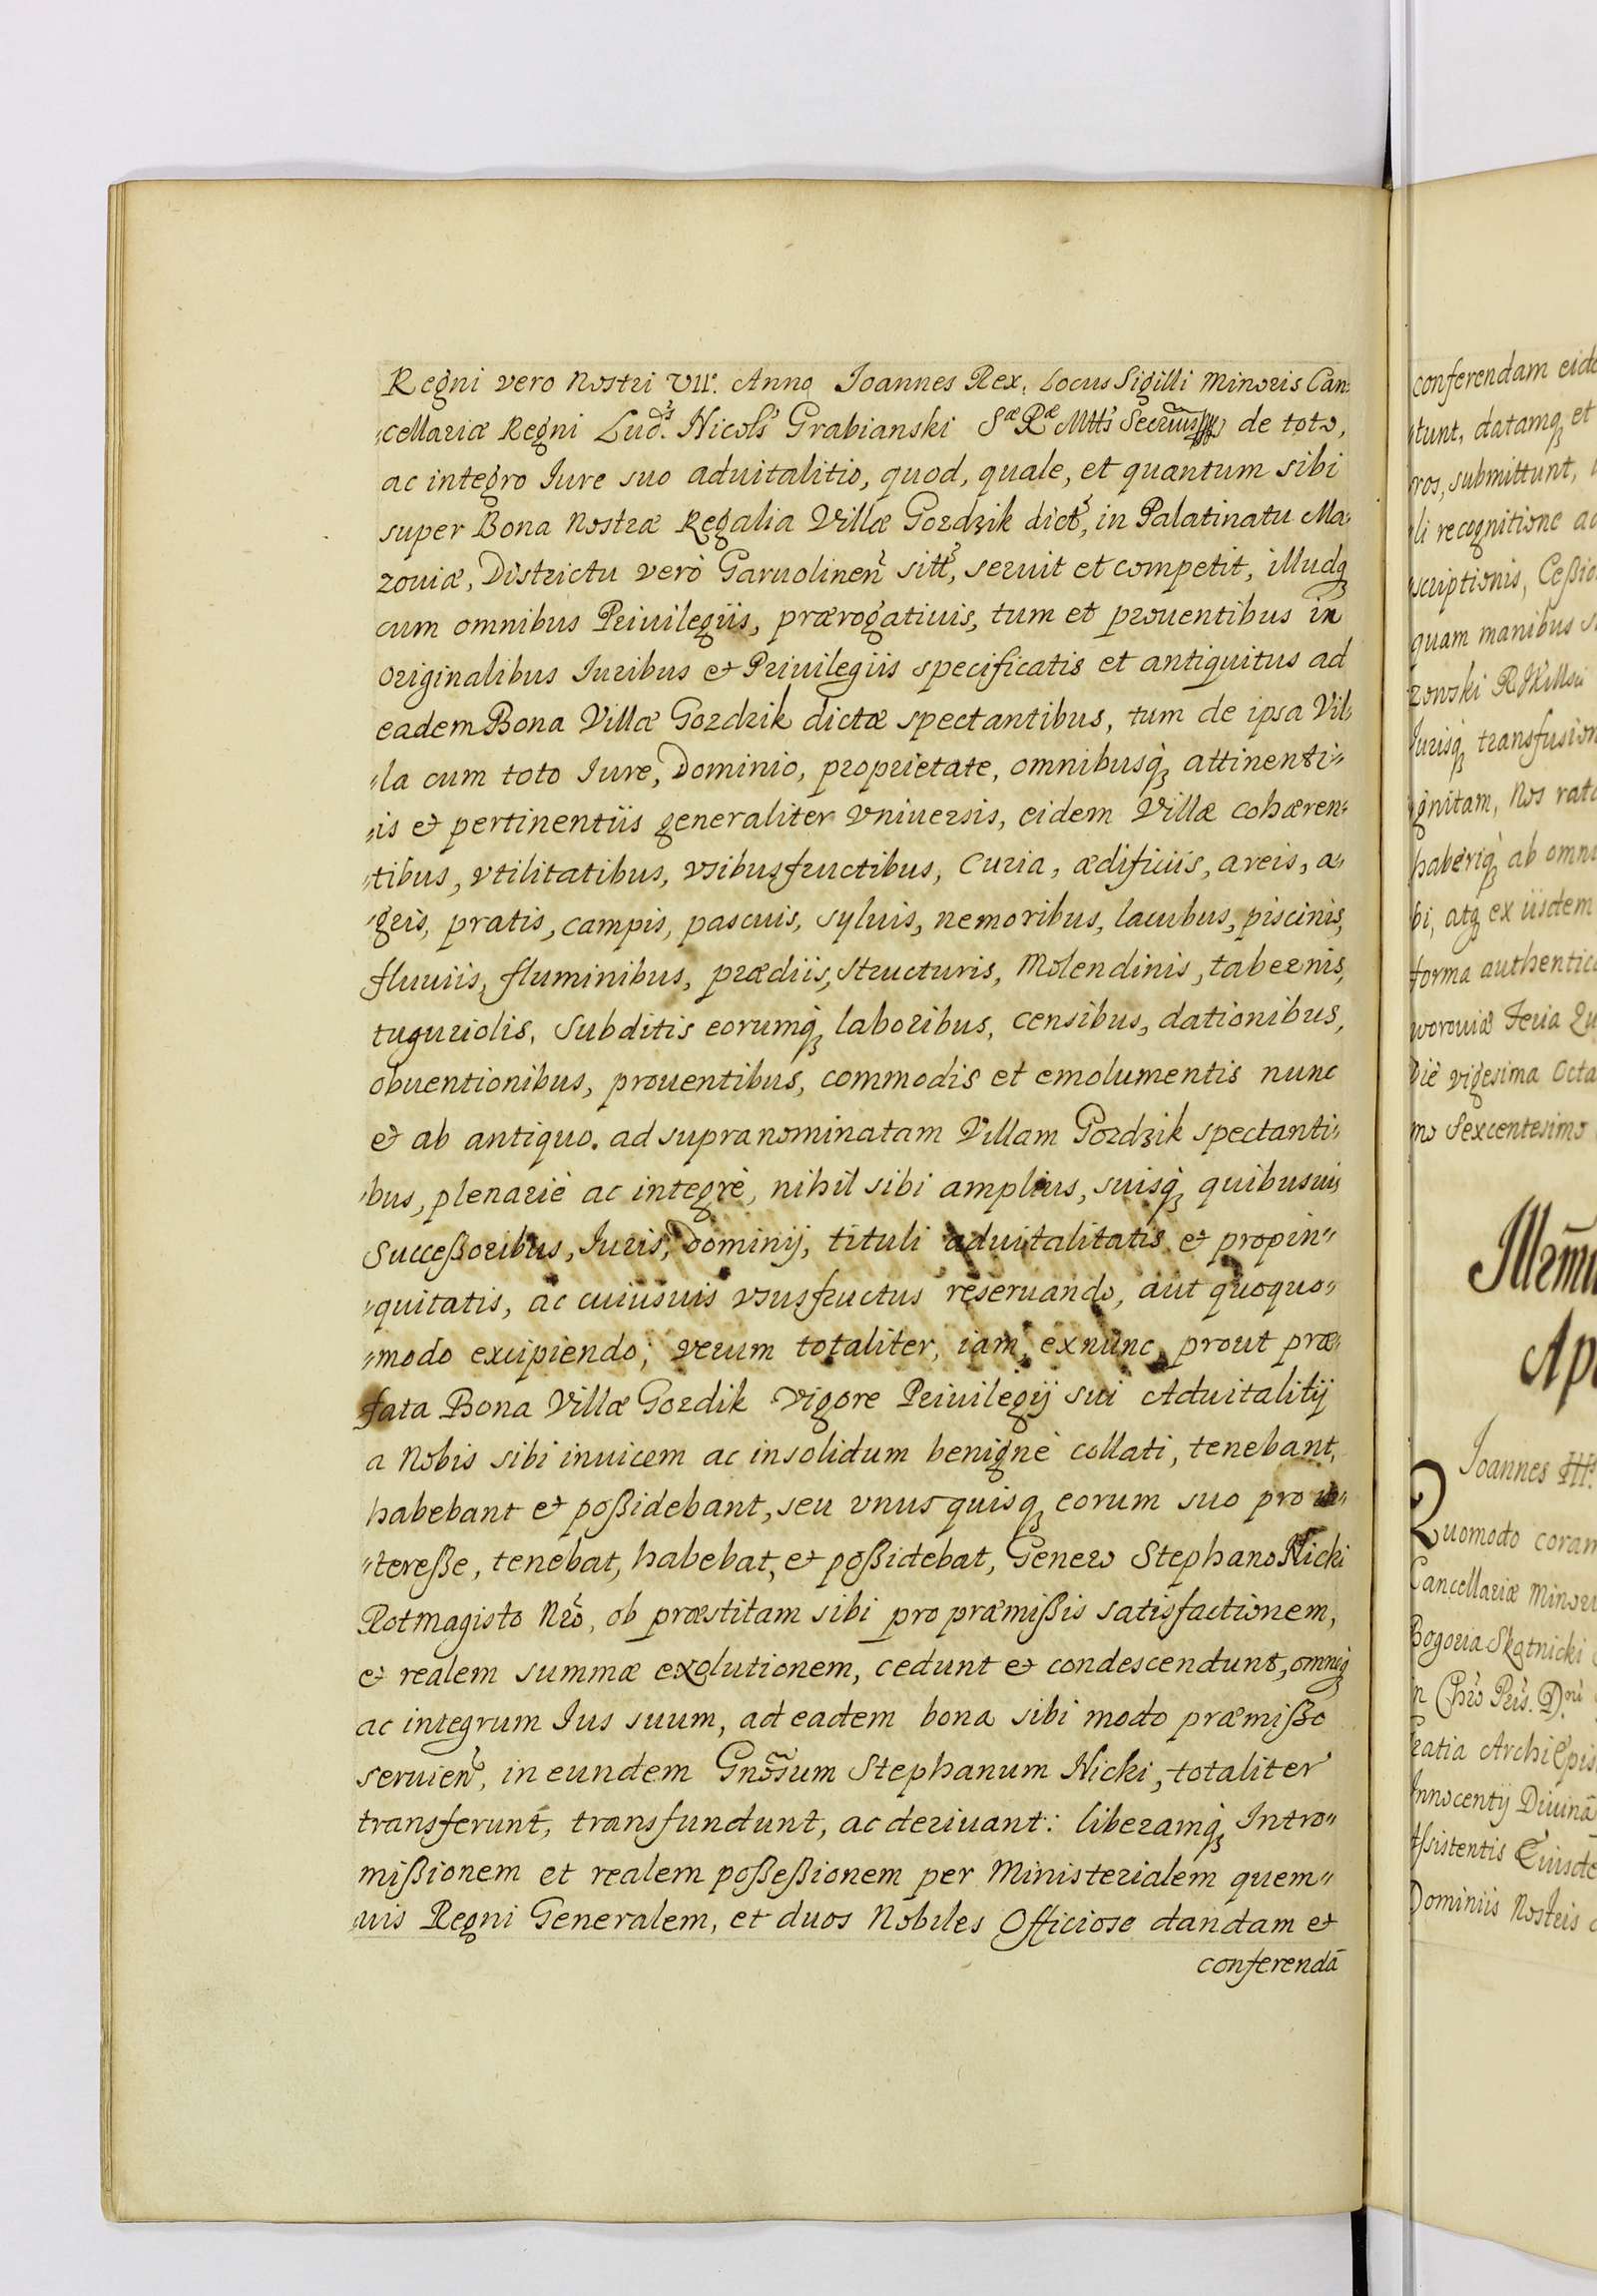 Regni vero Nostri VII. Anno Joannes Rex. Locus Sigilli Minoris Can:
cellariæ Regni Nicols Grabianski Sæ Ræ Mttis de toto,
ac integro Iure suo aduitalitio, quod, quale, et quantum sibi
super Bona Nostra Regalia Villæ Gozdzik dict, in Palatinatu Ma,
zouiæ, Districtu verò Garuolinen sitt, seruit et competit, illudq
cum omnibus Priuilegiis, prærogatiuis, tum et prouentibus in
Originalibus Iuribus & Priuilegiis specificatis et antiquitus ad
eadem Bona Villæ Gozdzik dictæ spectantibus, tum de ipsa Vil,
"la cum toto Iure, Dominio, proprietate, omnibusq attinenti"
"is & pertinentiis generaliter vniuersis, eidem Villæ cohæren"
"tibus, vtilitatibus, vsibusfructibus, Curia, ædificiis, areis, a"
"gris, pratis, campis, pascuis, syluis, nemoribus, lacubus, piscinis,
fluuiis, fluminibus, prædiis, structuris, Molendinis, tabernis,
tuguriolis, Subditis eorumq laboribus, censibus, dationibus,
obuentionibus, prouentibus, commodis et emolumentis nunc
& ab antiquo. ad supranominatam Villam Gozdzik spectanti"
"bus, plenariè ac integrè, nihil sibi amplius, suisq quibusuis
Succeßoribus, Iuris, Dominij, tituli aduitalitatis & propin"
"quitatis, ac cuiusuis vsusfructus reseruando, aut quoquo"
"modo excipiendo; verum totaliter, iam, exnunc, prout præ"
fata Bona Villæ Gozdik vigore Priuilegij sui Aduitalitij
a Nobis sibi inuicem ac insolidum benignè collati, tenebant,
habebant & poßidebant, seu vnusquisq eorum suo pro in"
"tereße, tenebat, habebat, & poßidebat, Genero Stephano Nicki
Rotmagisto Nro, ob præstitam sibi pro præmißis satisfactionem,
& realem summæ exolutionem, cedunt & condescendunt, omneq
ac integrum Ius suum, ad eadem bona sibi modo præmißo
seruien, in eundem Gnosum Stephanum Nicki, totaliter
transferunt, transfundunt, ac deriuant: liberamq Intro"
mißionem et realem poßeßionem per Ministerialem quem"
"uis Regni Generalem, et duos Nobiles Officiose dandam &
conferendā
conferendam eide
"tunt, datamq et
ros, submittunt,
li recognitione ac
"scriptionis, Ceßio
quam manibus s
zowski
Iurisq transfusion
gnitam, Nos rat
haberiq ab omni
bi, atq ex iisdem
forma authentica
worouiæ Feria Qu
Die vigesima Octa
mo Sexcentesimo
Illrmi
Ap
Joannes III
Quomodo coram
Cancellariæ Minori
Bogoria Skotnicki
in Chro Pris. Dni
ratia Archiepis
Innocentij Diuinā
Aßistentis Eiusde
Dominiis Nostris